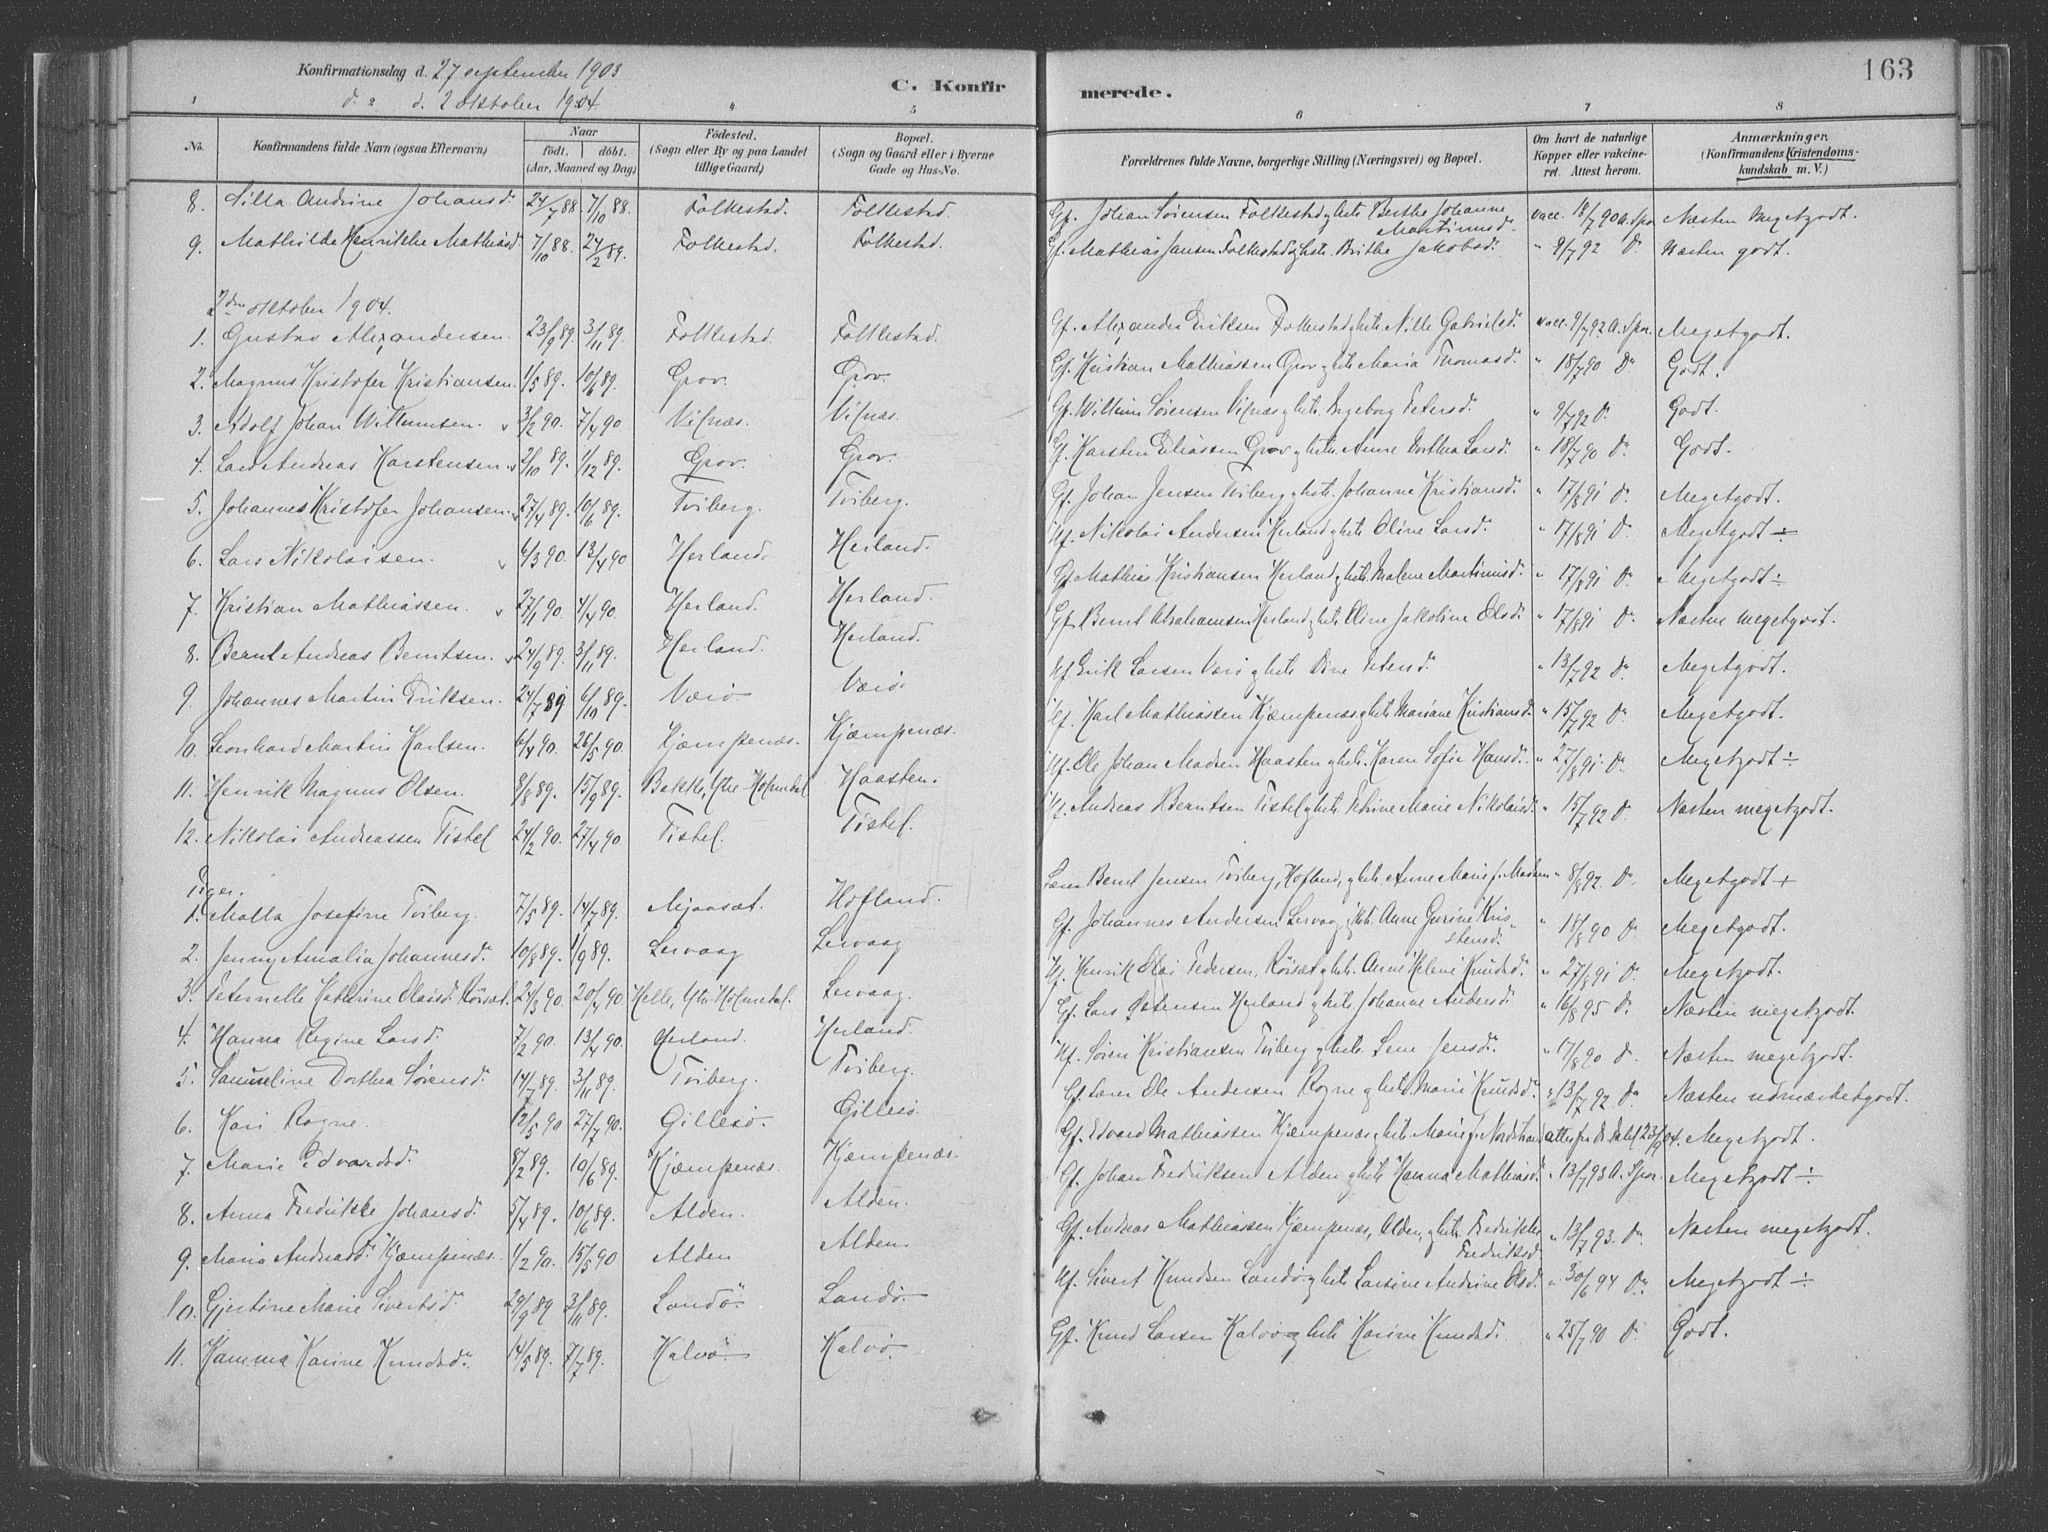 163
Konfirmationsdag d. 27 september 1903
d. 2 oktober 1904.
C. Konfirmerede.
1 4 5 6 7 8
No. Konfirmandens fulde Navn (ogsaa Efternavn) Naar født. døbt. (Aar, Maaned og Dag) Fødested. (Sogn eller By og paa Landet tillige Gaard) Bopæl. (Sogn og Gaard eller i Byerne Gade og Hus-No. Forældrenes fulde Navne, borgerlige Stilling (Næringsvei) og Bopæl. Om havt de naturlige Kopper eller vakcineret. Attest herom. Anmærkninger. (Konfirmandens Kristendomskundskab m. V.)
8. Silla Andrine Johansd. 24/7 88. 7/10 88. Folkestad. Folkestad. Gf. Johan Sørensen Folkestad og htr. Berthe Johanne Martinusd. vacc. 18/7 90 A. Spor Næsten Megetgodt.
9. Mathilde Henrikke Mathiasd. 7/10 88. 24/2 89. Folkestad. Folkestad. Gf. Mathias Jansen Folkestad og htr. Brithe Jakobsd. " 9/7 92 Do Næsten godt.
2den oktober 1904.
1. Gustav Alexandersen. 23/9 89. 3/11 89. Folkestad. Folkestad. Gf. Alexander Eriksen Folkestad og htr. Nille Gabrielsd. vacc. 9/7 92 A. Spor. Megetgodt.
2. Magnus Kristofer Kristiansen. 1/5 89. 10/6 89. Grov. Grov. Gf. Kristian Mathiassen Grov og htr. Maria Thomasd. " 18/7 90 Do Godt.
3. Adolf Johan Willumsen. v 3/2 90. 7/4 90 Vifnæs. Vifnæs. Gf. Willum Sørensen Vifnæs og htr. Ingeborg Petersd. " 9/7 92 Do Godt.
4. Lars Andreas Karstensen v 2/10 89. 1/12 89. Grov. Grov. Gf. Karsten Eliassen Grov og htr. Anne Dorthea Larsd. " 18/7 90 Do Godt.
5. Johannes Kristofer Johansen. v 27/4 89. 10/6 89. Tviberg. Tviberg. Gf. Johan Jensen Tviberg og htr. Johanne Kristiansd. " 17/8 91 Do Megetgodt.
6. Lars Nikolaisen. v 6/3 90. 13/4 90 Herland. Herland. Nikolai Andersen Herland og htr. Oline Larsd. " 17/8 91 Do Megetgodt ÷
7. Kristian Mathiassen. v 27/1 90. 4/4 90. Herland. Herland. Gf. Mathias Kristiansen Herland og htr. Malene Martinusd. " 17/8 91 Do Megetgodt ÷
8. Bernt Andreas Berntsen. v 24/9 89. 3/11 89. Herland. Herland. Gf. Bernt Abrahamsen Herland og htr. Oline Jakobine Olsd. " 17/8 91 Do Næsten megetgodt.
9. Johannes Martin Eriksen. 24/7 89 6/10 89. Værø Værø. Erik Larsen Værø og htr. Petersd. " 13/7 92 Do Megetgodt.
10. Leonhard Martin Karlsen. 6/4 90. 26/5 90. Kjæmpenæs. Kjæmpenæs. Karl Mathiassen Kjæmpenæs og htr. Mariane Kristiansd. " 15/7 92 Do Megetgodt.
11. Henrik Magnus Olsen. 8/8 89. 15/9 89. Bakke, Ytre-Holmedal Haasten. Ole Johan Madsen Haasten og htr. Karen Sofie Hansd. " 27/8 91 Do Megetgodt ÷
12. Nikolai Andreassen Tistel 24/2 90. 27/4 90. Tistel. Tistel. Andreas Berntsen Tistel og htr. Petrine Marie Nikolaisd. " 15/7 92 Do. Næsten megetgodt.
Piger.
1. Malla Josefine Tviberg. 7/5 89. 14/7 89. Mjaasæt. Hofland. Lærer Bernt Jensen Tviberg, Hofland, og htr. Anne Marie f. Madsen " 8/8 92. Do. Megetgodt +
2. Jenny Amalia Johannesd. 10/8 89. 1/9 89. Lervaag Lervaag Gf. Johannes Andersen Lervaag og htr. Anne Gurine Kristensd. " 18/8 90 Do. Megetgodt.
3. Peternelle Kathrine Olaisd. Rørsæt. 24/3 90 20/4 90 Helle, Ytr. Holmedal. Lervaag. Henrik Olai Pedersen, Rørsæt og htr. Anne Helene Knudsd. " 27/8 91 Do Megetgodt.
4. Hanna Regine Larsd. 7/2 90. 13/4 90. Herland. Herland. Gf. Lars Østensen Herland og htr. Johanne Andersd. " 16/8 95 Do. Næsten megetgodt.
5. Samueline Dorthea Sørensd. 14/7 89. 3/11 89. Tviberg. Tviberg. Søren Kristiansen Tviberg og htr. Lene Jensd. " 17/8 90 Do Næsten megetgodt.
6. Kari Rogne. 12/5 90 27/7 90. Gillesø. Gillesø. Gf. Lærer Ole Andersen Rogne og htr. Marie Knudsd. " 13/7 92 Do Næsten udmærketgodt.
7. Marie Edvardsd. 8/2 89. 10/6 89. Kjæmpenæs. Kjæmpenæs. Gf. Edvard Mathiassen Kjæmpenæs og htr. Marie f. Nordstrand attest fra Dr. Dahl 23/9 04. Megetgodt.
8. Anna Fredrikke Johansd. 5/4 89. 10/6 89. Alden. Alden. Gf. Johan Fredriksen Alden og htr. Hanna Mathiasd. " 13/7 93 A. Spor. Megetgodt ÷
9. Maria Andreasd. Kjæmpenæs. 1/2 90. 15/5 90 Alden Alden. Gf. Andreas Mathiassen Kjæmpenæs, Alden, og htr. Fredrikke Fredriksd. " 13/7 93. Do Næsten megetgodt.
10. Gjertine Marie Sivertsd. 29/9 89 3/11 89. Landø. Landø. Sivert Knudsen Landø og htr. Larsine Andrine Olsd. " 30/6 94 Do. Megetgodt ÷
11. Hanna Karine Knudsd. 14/5 89. 7/7 89. Kalvø Kalvø. Gf. Knud Larsen Kalvø og htr. Karine Knudsd. " 25/7 90 Do. Godt.